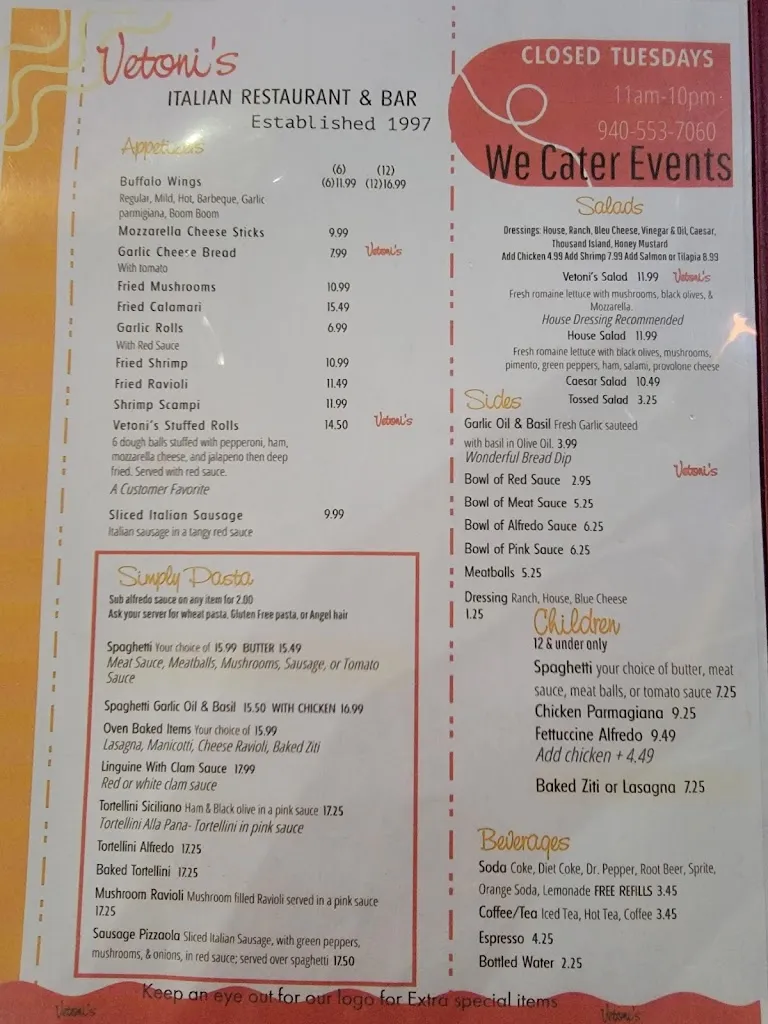 Vetoni's
ITALIAN RESTAURANT & BAR
Established 1997
Appetizers
(6) (12)
Buffalo Wings (6)11.99 (12)16.99
Regular, Mild, Hot, Barbeque, Garlic
parmigiana, Boom Boom
Mozzarella Cheese Sticks 9.99
Garlic Cheese Bread 7.99 Vetoni's
With tomato
Fried Mushrooms 10.99
Fried Calamari 15.49
Garlic Rolls 6.99
With Red Sauce
Fried Shrimp 10.99
Fried Ravioli 11.49
Shrimp Scampi 11.99
Vetoni's Stuffed Rolls 14.50 Vetoni's
6 dough balls stuffed with pepperoni, ham,
mozzarella cheese, and jalapeno then deep
fried. Served with red sauce.
A Customer Favorite
Sliced Italian Sausage 9.99
Italian sausage in a tangy red sauce
Simply Pasta
Sub alfredo sauce on any item for 2.00
Ask your server for wheat pasta, Gluten Free pasta, or Angel hair
Spaghetti Your choice of 15.99 BUTTER 15.49
Meat Sauce, Meatballs, Mushrooms, Sausage, or Tomato
Sauce
Spaghetti Garlic Oil & Basil 15.50 WITH CHICKEN 16.99
Oven Baked Items Your choice of 15.99
Lasagna, Manicotti, Cheese Ravioli, Baked Ziti
Linguine With Clam Sauce 17.99
Red or white clam sauce
Tortellini Siciliano Ham & Black olive in a pink sauce 17.25
Tortellini Alla Pana- Tortellini in pink sauce
Tortellini Alfredo 17.25
Baked Tortellini 17.25
Mushroom Ravioli Mushroom filled Ravioli served in a pink sauce
17.25
Sausage Pizzaola Sliced Italian Sausage, with green peppers,
mushrooms, & onions, in red sauce; served over spaghetti 17.50
CLOSED TUESDAYS
11am-10pm
940-553-7060
We Cater Events
Salads
Dressings: House, Ranch, Bleu Cheese, Vinegar & Oil, Caesar,
Thousand Island, Honey Mustard
Add Chicken 4.99 Add Shrimp 7.99 Add Salmon or Tilapia 8.99
Vetoni's Salad 11.99 Vetoni's
Fresh romaine lettuce with mushrooms, black olives, &
Mozzarella.
House Dressing Recommended
House Salad 11.99
Fresh romaine lettuce with black olives, mushrooms,
pimento, green peppers, ham, salami, provolone cheese
Caesar Salad 10.49
Tossed Salad 3.25
Sides
Garlic Oil & Basil Fresh Garlic sauteed
with basil in Olive Oil. 3.99
Wonderful Bread Dip
Vetoni's
Bowl of Red Sauce 2.95
Bowl of Meat Sauce 5.25
Bowl of Alfredo Sauce 6.25
Bowl of Pink Sauce 6.25
Meatballs 5.25
Dressing Ranch, House, Blue Cheese
1.25
Children
12 & under only
Spaghetti your choice of butter, meat
sauce, meat balls, or tomato sauce 7.25
Chicken Parmagiana 9.25
Fettuccine Alfredo 9.49
Add chicken + 4.49
Baked Ziti or Lasagna 7.25
Beverages
Soda Coke, Diet Coke, Dr. Pepper, Root Beer, Sprite,
Orange Soda, Lemonade FREE REFILLS 3.45
Coffee/Tea Iced Tea, Hot Tea, Coffee 3.45
Espresso 4.25
Bottled Water 2.25
Keep an eye out for our logo for Extra special items
Vetoni's Vetoni's